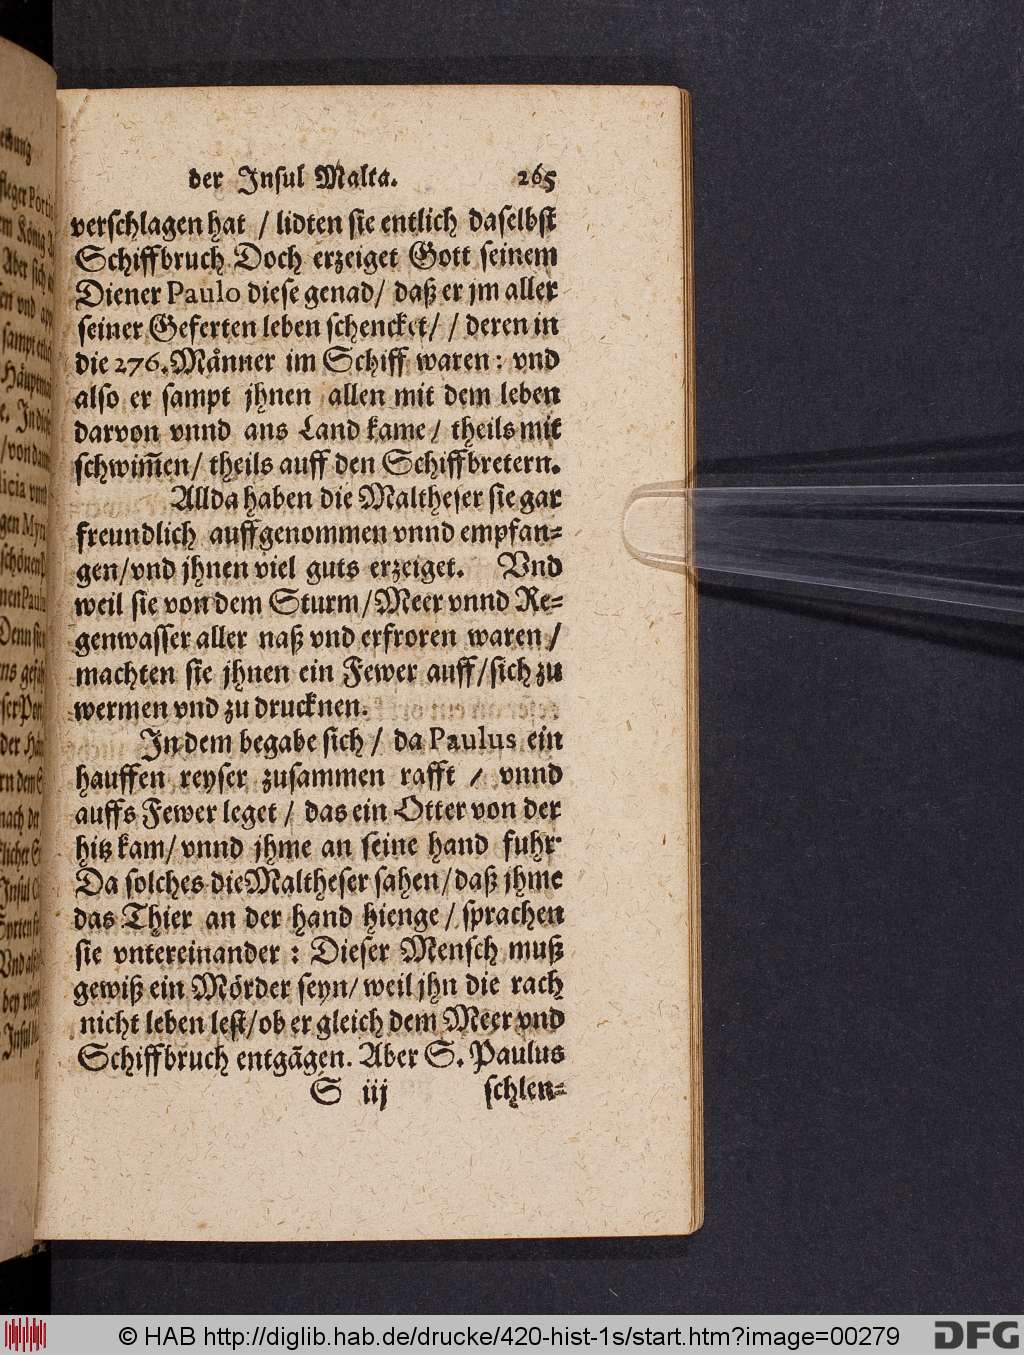 der Insul Malta. 265
verschlagen hat / lidten sie entlich daselbst
Schiffbruch Doch erzeiget Gott seinem
Diener Paulo diese genad/ daß er jm aller
seiner Geferten leben schencket/ / deren in
die 276. Mãnner im Schiff waren: vnd
also er sampt jhnen allen mit dem leben
darvon vnnd ans Land kame/ theils mit
schwim̃en/ theils auff den Schiffbretern.
Allda haben die Maltheser sie gar
freundlich auffgenommen vnnd empfan-
gen/vnd jhnen viel guts erzeiget. Vnd
weil sie von dem Sturm/Meer vnnd Re-
genwasser aller naß vnd erfroren waren/
machten sie jhnen ein Fewer auff/sich zu
wermen vnd zu drucknen.
In dem begabe sich/ da Paulus ein
hauffen reyser zusammen rafft / vnnd
auffs Fewer leget/ das ein Otter von der
hitz kam/ vnnd jhme an seine hand fuhr
Da solches die Maltheser sahen/daß jhme
das Thier an der hand hienge/ sprachen
sie vntereinander: Dieser Mensch muß
gewiß ein Mörder seyn/ weil jhn die rach
nicht leben lest/ob er gleich dem Meer vnd
Schiffbruch entgãgen. Aber S. Paulus
S iij schlen-
© HAB http://diglib.hab.de/drucke/420-hist-1s/start.htm?image=00279
DFG